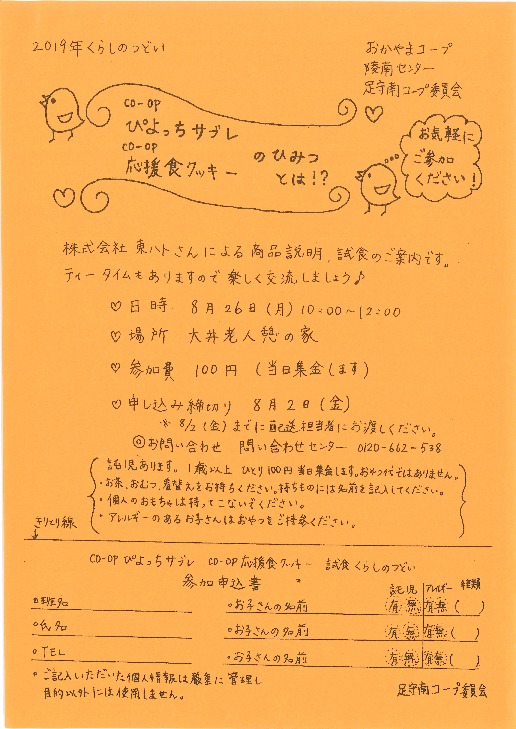 2019年くらしのつどい
おかやまコープ
陵南センター
足守南コープ委員会
CO-OP
ぴよっちサブレ
CO-OP
応援食クッキー
のひみつ
とは!?
お気軽に
ご参加
ください!
株式会社 東ハトさんによる商品説明、試食のご案内です。
ティータイムもありますので楽しく交流しましょう♪
♡日時 8月26日(月)10:00〜12:00
♡場所 大井老人憩の家
♡参加費 100円 (当日集金します)
♡申し込み締切り 8月2日(金)
※8/2(金)までに配送担当者にお渡しください。
◎お問い合わせ 問い合わせセンター 0120-662-538
託児あります。1歳以上 ひとり100円当日集金します。おやつ代ではありません。
・お茶、おむつ、着替えをお持ちください。持ちものには名前を記入してください。
・個人のおもちゃは持ってこないでください。
・アレルギーのあるお子さんはおやつをご持参ください。
きりとり線
CO-OP ぴよっちサブレ CO-OP 応援食クッキー 試食 くらしのつどい
参加申込書
託児 アレルギー 年齢
・班名 ・お子さんの名前 有 無 有 無 ( )
・氏名 ・お子さんの名前 有 無 有 無 ( )
・TEL ・お子さんの名前 有 無 有 無 ( )
・ご記入いただいた個人情報は厳重に管理し
目的以外には使用しません。
足守南コープ委員会